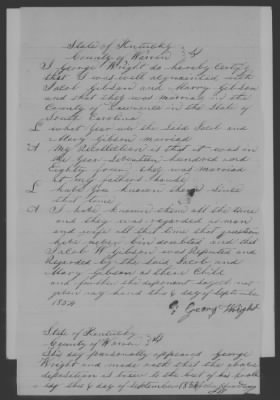 State of Kentucky
County of Warren
I George Wright do hereby certify
that I was well aquainted with
Jacob Gibson and Mary Gibson
and that they was married in the
County of in the State of
South Carolina
what year was the said Jacob and
Mary Gibson married
A My Recollection is that it was in
the year Seventeen hundred and
Eighty four they was married
at my fathers house
have you known them since
that time
A I have known them all the time
and they was regarded as man
and wife all that time that question
never bin doubted and that
Jacob W Gibson was Reputed and
Regarded by the said Jacob and
Mary Gibson as there Child
and further the deponent sayeth not
given my hand this 6 day of September
1854
George Wright
State of Kentucky
County of Warren
This day personally appeared George
Wright and made oath that the above
deposition is true to the best of his
this 6 day of September 1854